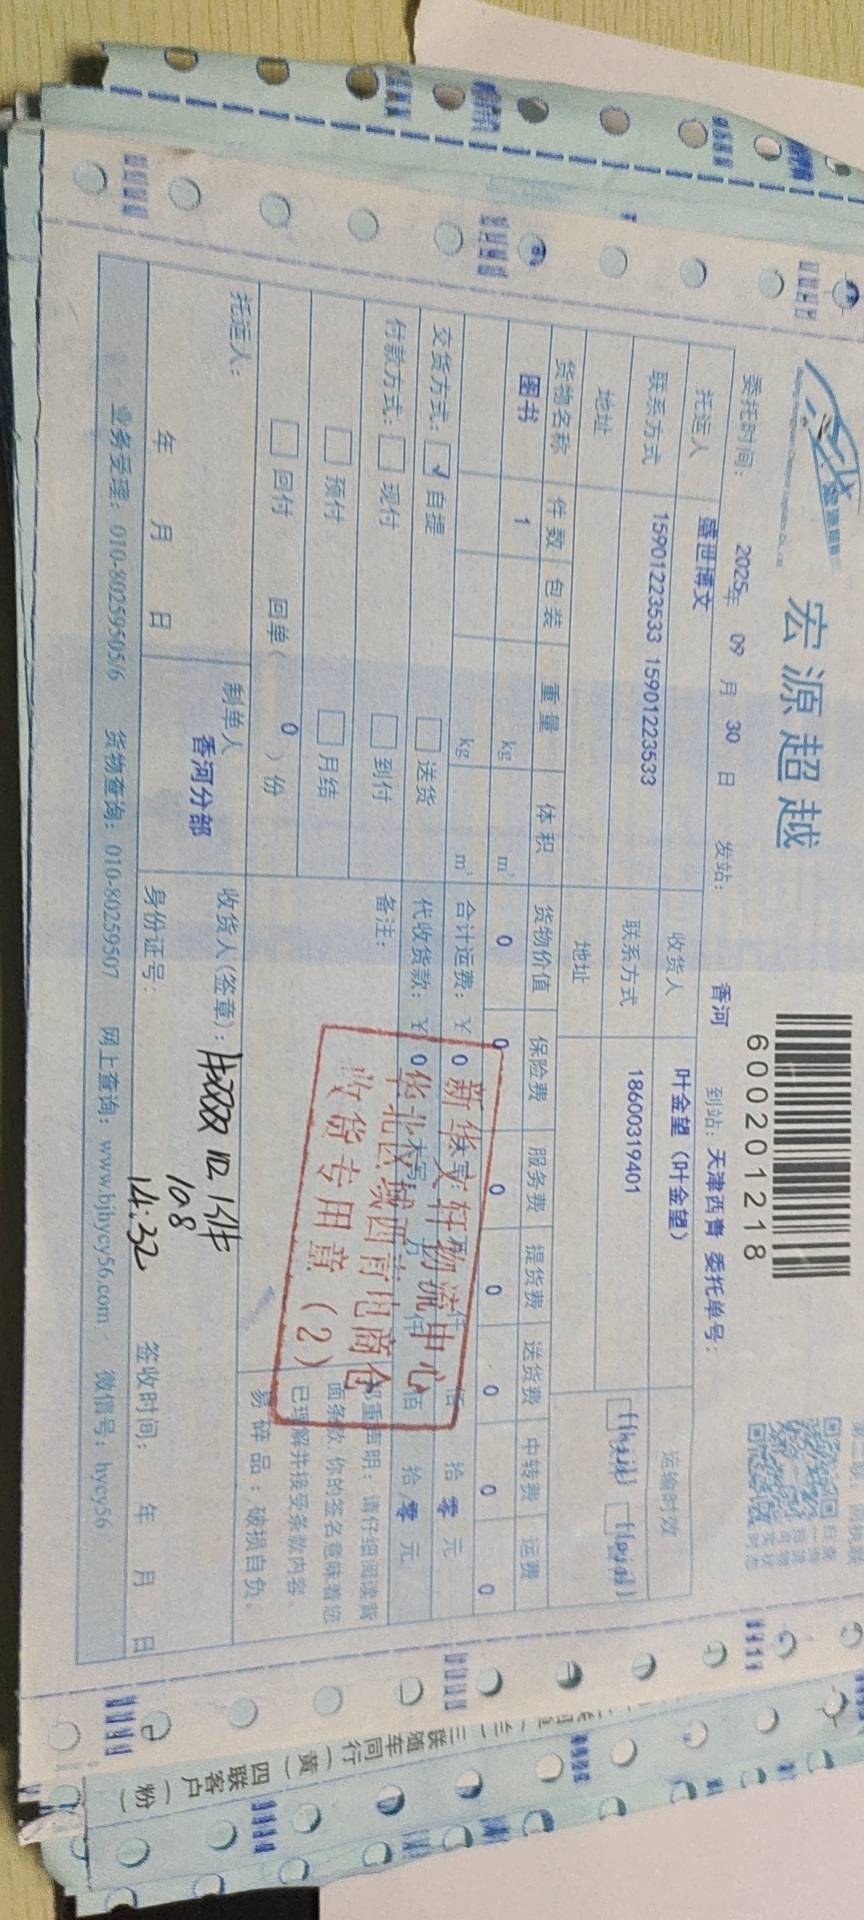 宏源超越
600201218
委托时间： 2025年 09 月 30 日 发站： 香河 到站：天津西青 委托单号：
托运人 盛世博文 收货人 叶金望（叶金望） 运输时效
联系方式 15901223533 15901223533 联系方式 18600319401
地址 地址
货物名称 件数 包装 重量 体积 货物价值 保险费 服务费 提货费 送货费 中转费 运费
图书 1 kg m³ 0 0 0 0 0 0 0
kg m³ 合计运费：￥ 0 仟 佰 拾 零 元
交货方式： ☑ 自提 □ 送货 代收货款：￥ 0 万 仟 佰 拾 零 元
付款方式： □ 现付 □ 到付 备注：
□ 预付 □ 月结
□ 回付 回单（ 0 ）份
郑重声明：请仔细阅读背
面条款，你的签名意味着您
已理解并接受条款内容。
易碎品：破损自负。
新华文轩物流中心
华北区域西青电商仓
收货专用章（2）
托运人： 制单人 收货人（签章）：
香河分部
10.8
14:32
年 月 日 身份证号： 签收时间： 年 月 日
业务受理：010-80259505/6 货物查询：010-80259507 网上查询：www.bjhycy56.com 微信号：hycy56
三联随车同行（黄）四联客户（粉）